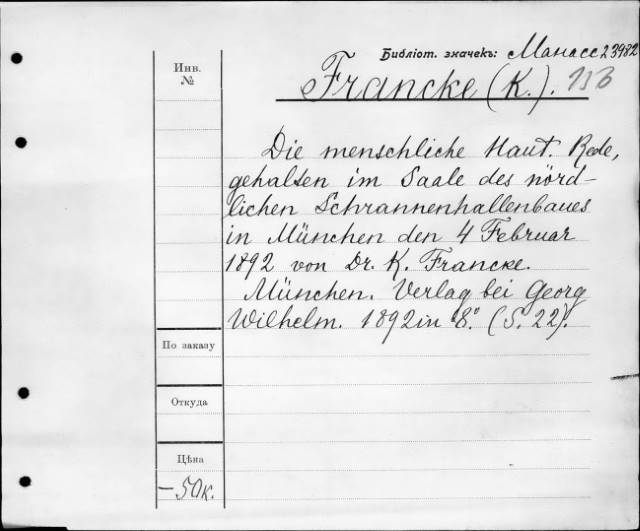 Библіот. значекъ: Манасс 23982
Francke (K.).
Инв.
№
Die menschliche Haut. Rede,
gehalten im Saale des nörd-
lichen Schrannenhallenbaues
in München den 4 Februar
1892 von Dr. K. Francke.
München. Verlag bei Georg
Wilhelm. 1892 in 8.° (S. 22).
По заказу
Откуда
Цѣна
— 50 к.